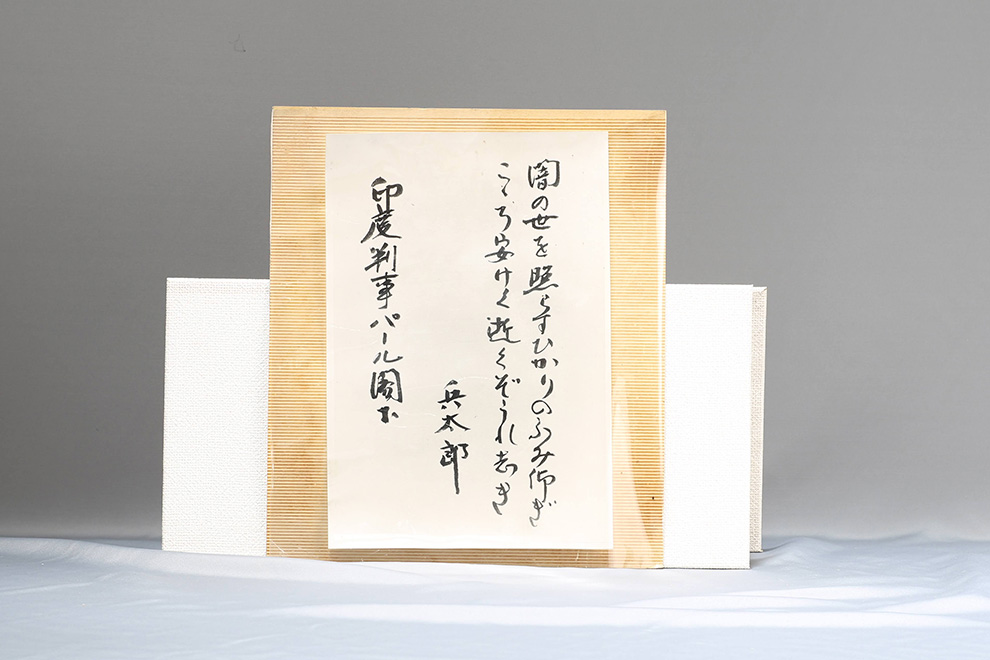 闇の世を照らすひかりのふみ仰ぎ
こゝろ安けく逝くぞうれ志き
兵太郎
印度判事パール閣下